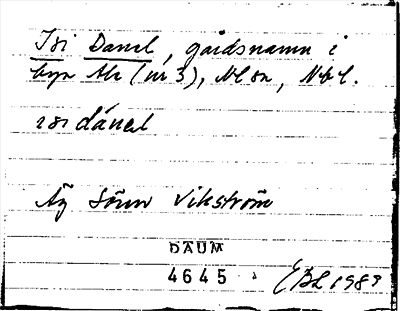 Isi Danel, gårdsnamn i
byn Ale (nr 3), Nlsn, Nbl.
isi dánel
Äg Sönne Vikström
DAUM
4645 EBL 1989